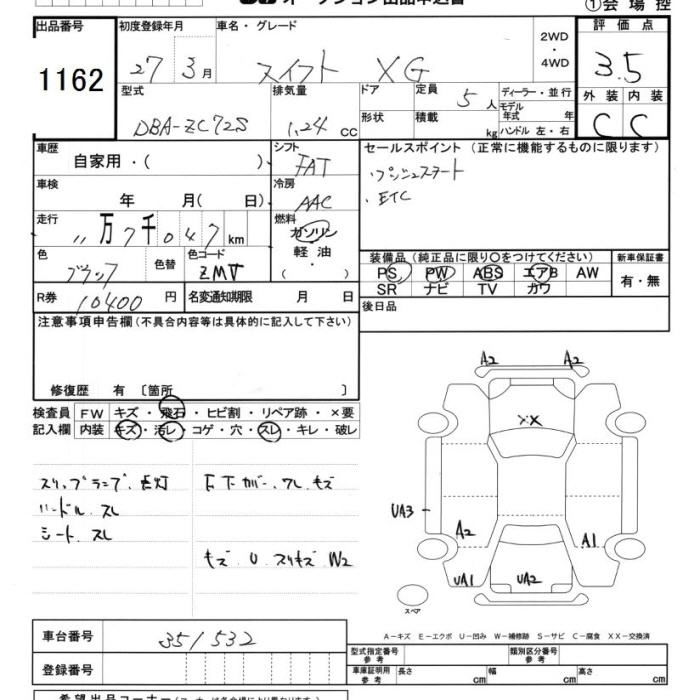 オークション出品申込書
①会場控
出品番号 初度登録年月 車名・グレード 2WD・4WD 評価点
1162 27 3月 スイフト XG 3.5
型式 排気量 ドア 定員 5人 ディーラー・並行 外装 内装
DBA-ZC72S 1.24 CC 形状 積載 kg モデル年式 年 C C
ハンドル 左・右
車歴 自家用・( ) シフト FAT セールスポイント (正常に機能するものに限ります)
車検 年 月( 日) 冷房 AAC プッシュスタート
・ETC
走行 11万7千047km 燃料 ガソリン
軽油・( )
色 ブラック 色替 色コード ZMV
装備品(純正品に限り○をつけてください) 新車保証書
PS PW ABS エアB AW 有・無
SR ナビ TV カワ
R券 10400円 名変通知期限 月 日 後日品
注意事項申告欄(不具合内容等は具体的に記入して下さい)
修復歴 有 〔箇所 〕
検査員 FW キズ・飛石・ヒビ割・リペア跡・×要
記入欄 内装 キズ・汚レ・コゲ・穴・スレ・キレ・破レ
スリップランプ、点灯 F下カバー、ワレ、キズ
ハンドル、スレ
シート、スレ
キズ、U、スリキズ W2
A2 A2
XX
UA3
A2 A1
UA1 UA2
スペア
A-キズ E-エクボ U-凹み W-補修跡 S-サビ C-腐食 XX-交換済
車台番号 351532
登録番号
型式指定番号 参考 類別区分番号 参考
車庫証明用 参考 長さ cm 幅 cm 高さ cm
希望出品コーナー